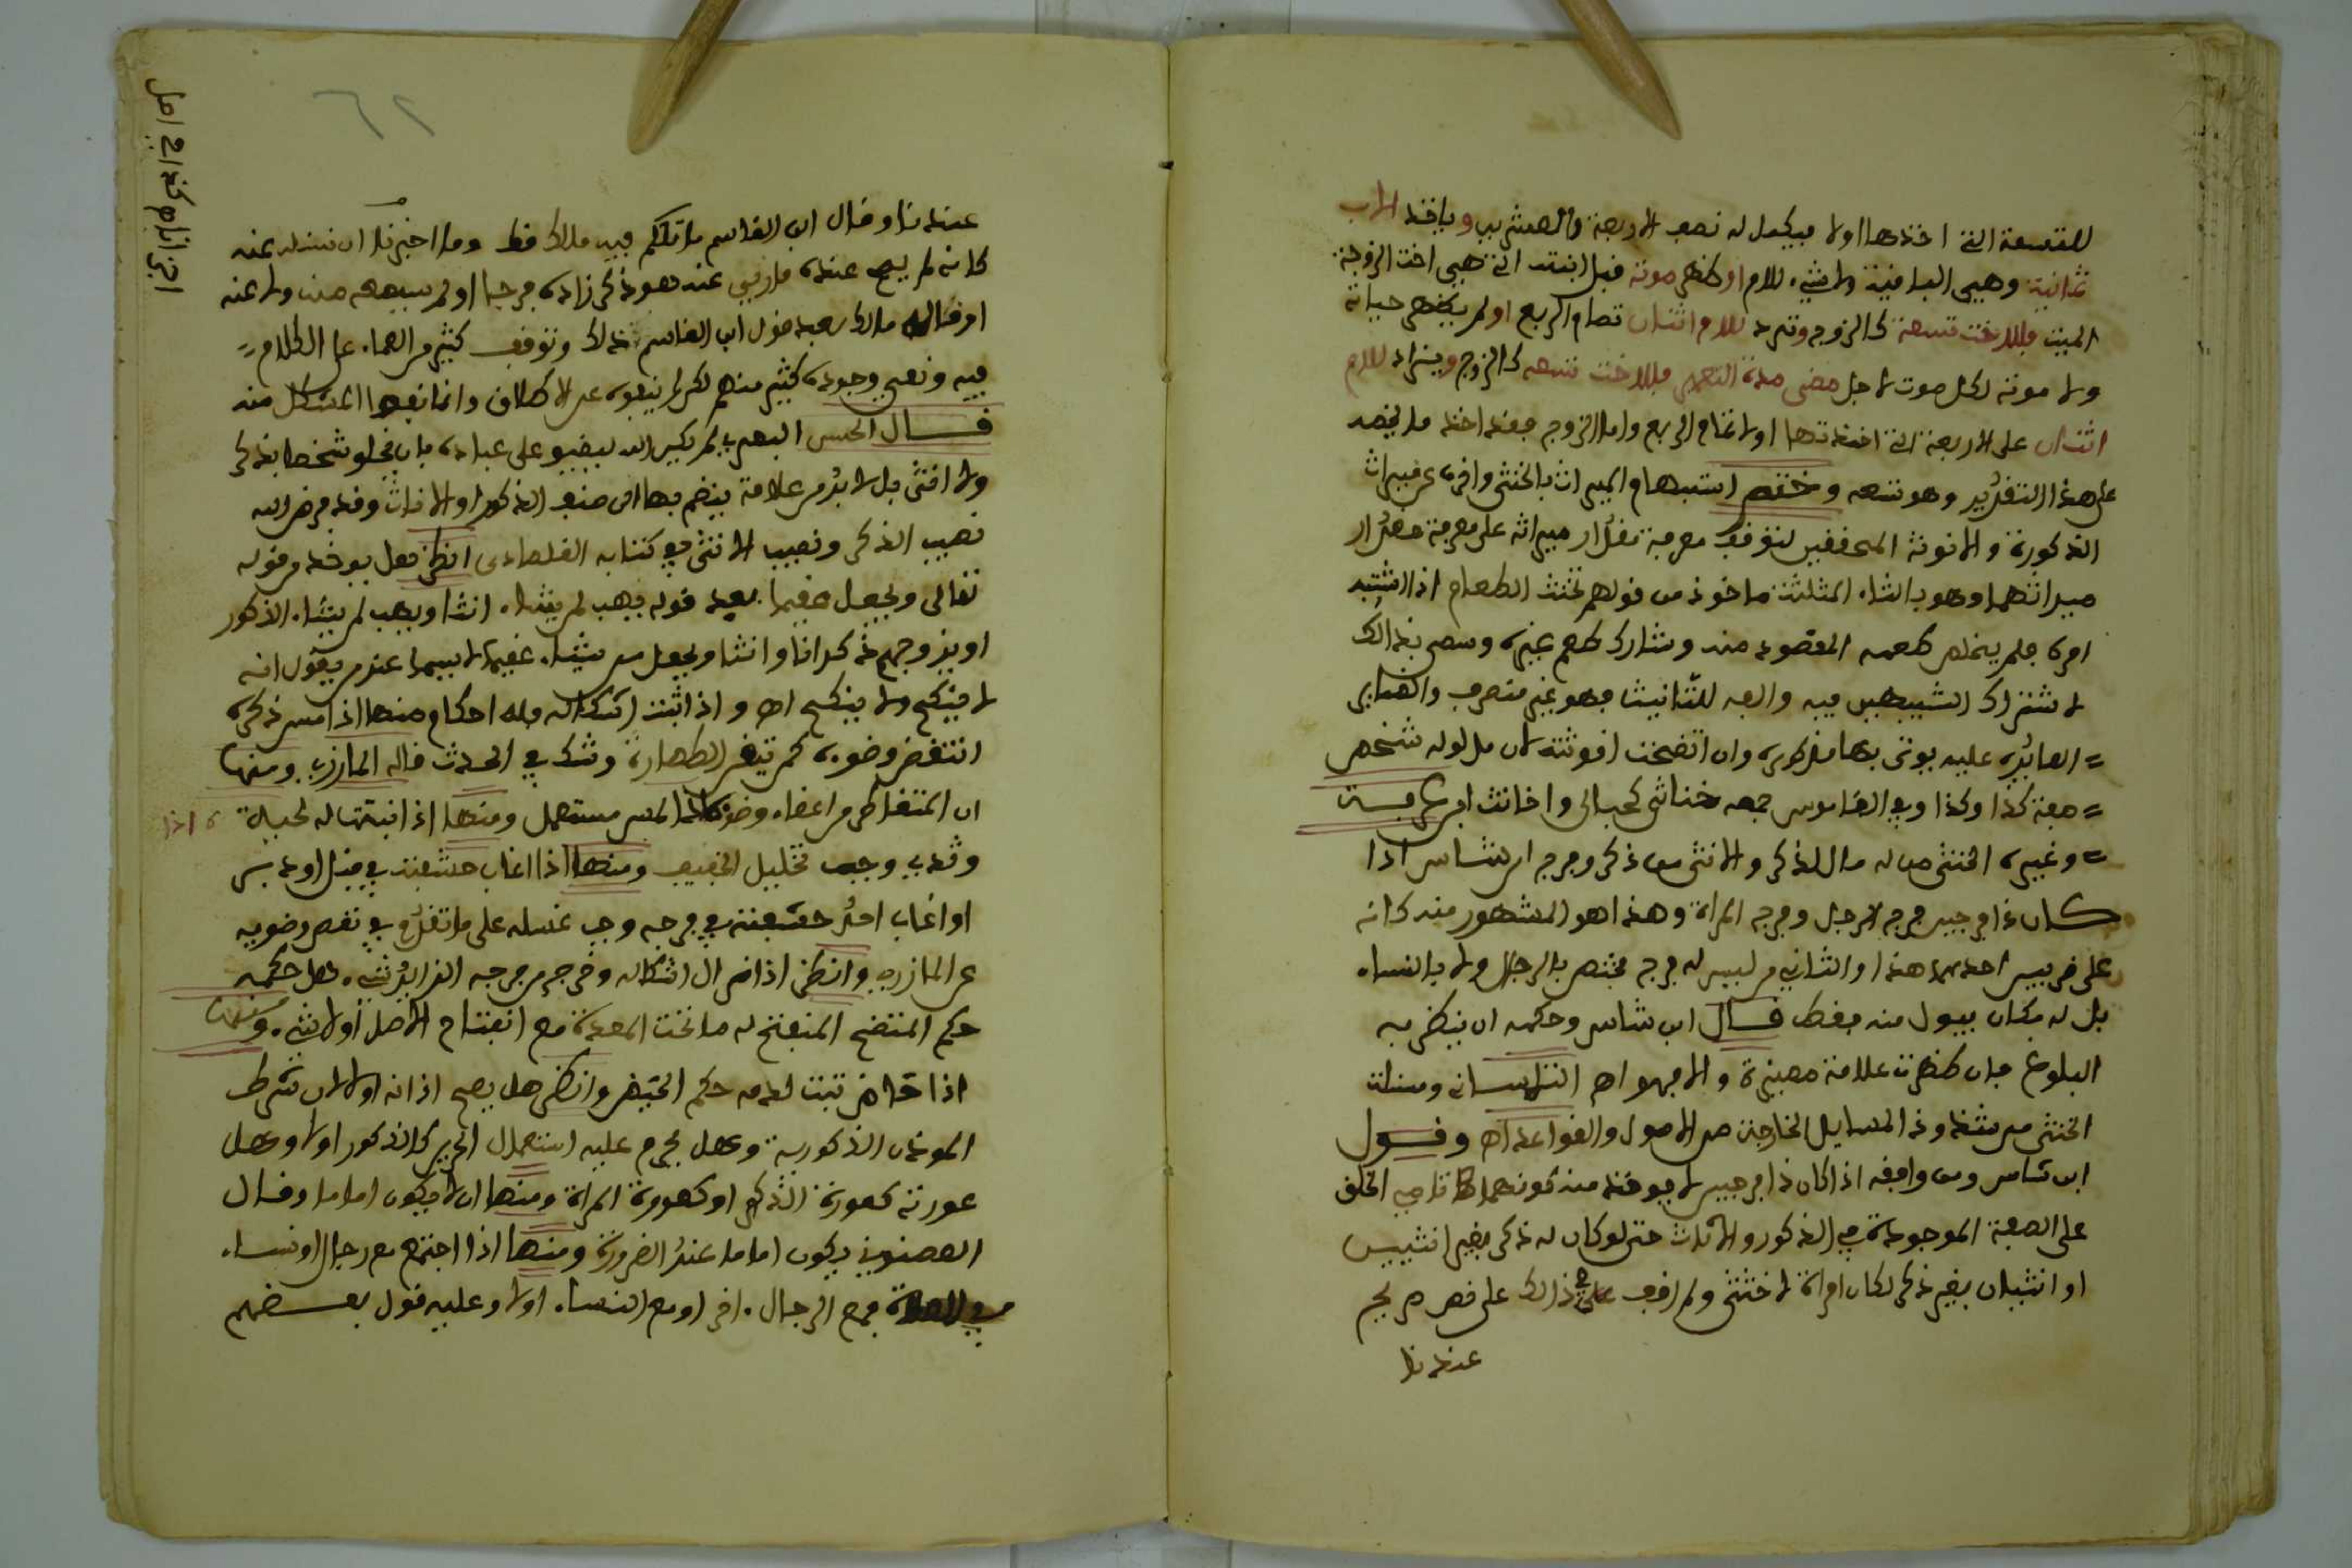 للتسعة التي اخذها اولا فيكمل له نصف الاربعة والعشرين وياخذ الاب
ثمانية وهي الباقية ولا شيء للام او ظهر موته قبل ابنته التي هي اخت الزوجة
الميت فللاخت تسعة كالزوج وتزد للام اثنان تمام الربع او لم يظهر حياته
ولا موته لكل موت لاجل مضي مدة التعمير فللاخت تسعه كالزوج ويزاد للام
اثنان على الاربعة التي اخذتها اولا تمام الربع واما الزوج فقد اخذ ما يخصه
على هذا التقدير وهو تسعه وختم اسباب الميراث بالخنثى واخره عن ميراث
الذكورة والانوثة المحققين لتوقف معرفة مقدار ميراثه على معرفة مقدار
ميراثهما وهو بالثاء المثلثة ماخوذ من قولهم تخنث الطعام اذا اشتبه
امره فلم يخلص طعمه المقصود منه وشارك طعم غيره وسمي بذالك
لاشتراك الشبيهين فيه والفه للتانيث فهو غير منصرف والضمائر
العائدة عليه يوتى بها مذكرة وان اتضحت انوثته لان مدلوله شخص
صفته كذا وكذا وفي القاموس جمعه خناثى كحبالى واخانث ابن عرفة
وغيره الخنثى من له مال الذكر والانثى من ذكر وفرج ابن شاس اذا
كان ذا فرجين فرج الرجل وفرج المراة وهذا هو المشهور منه كانه
على ضربين احدهما هذا والثاني من ليس له فرج مختص بالرجال ولا بالنساء
بل له مكان يبول منه فقط قال ابن شاس وحكمه ان ينظر به
البلوغ فان ظهرت علامة مميزة والا فهو اه التلمساني ومسئلة
الخنثى من شذوذ المسايل الخارجة عن الاصول والقواعد اه وقول
ابن شاس ومن وافقه اذا كان ذا فرجين لا يوخذ منه كونهما تامي الخلق
على الصفة الموجودة في الذكور والاناث حتى لو كان له ذكر بغير انثيين
او انثيان بغير ذكر لكان امراة لا خنثى ولم اقف على ذالك على نص صريح
عندنا
٦٢
اجزانام كذا في اصل
عندنا وقال ابن القاسم ما تكلم فيه مالك قط وما اجترنا ان نسئله عنه
كانه لم يصح عنده فارق عنده هو ذكر زاده فرجا او لم يسمعه منه ولا عنه
او قاله مالك بعد قول ابن القاسم ذلك وتوقف كثير من العلماء عن الكلام
فيه ونفى وجوده كثير منهم لكن لم ينفوه على الاطلاق وانما نفوا المشكل منه
قال الحسن البصري لم يكن الله ليضيق على عباده بان يخلق شخصا لا ذكر
ولا انثى بل لا بد من علامة ينضم بها الى صنف الذكور او الاناث وقد فرض الله
نصيب الذكر ونصيب الانثى في كتابه القلصادي انظر هل يوخذ من قوله
تعالى ويجعل عقيما بعد قوله يهب لمن يشاء اناثا ويهب لمن يشاء الذكور
او يزوجهم ذكرانا واناثا ويجعل من يشاء عقيما لاسيما عند من يقول انه
لا ينكح ولا ينكح اه و اذا ثبت اشكاله فله احكام منها اذا مس ذكره
انتقض وضوءه كمن تيقن الطهارة وشك في الحدث قاله المازري ومنها
ان المتقاطر من اعضاء وضوئه الماء المس مستعمل ومنها اذا نبتت له لحية
وثدي وجب تخليل الخفيف ومنها اذا اغاب حشفته في قبل او دبر
او اغاب احد حشفته في فرجه وجب غسله على ما تقدم في نقض وضوءه
عن المازري وانظر اذا زال اشكاله وخرج من فرجه الزايد شيء هل حكمه
حكم المنتضح المنفتح له ما تحت المعدة مع انفتاح الاصل او لا شيء ومنها
اذا حاض ثبت لدمه حكم الحيض وانظر هل يصح اذانه او لا لان شرط
الموذن الذكورية وهل يحرم عليه استعمال الحرير كالذكور اولا وهل
عورته كعورة الذكر او كعورة المراة ومنها ان لا يكون اماما وقال
العصنوني يكون اماما عند الضرورة ومنها اذا اجتمع مع رجال او نساء
في الصلاة فمع الرجال اخر او مع النساء اولا وعليه قول بعضهم